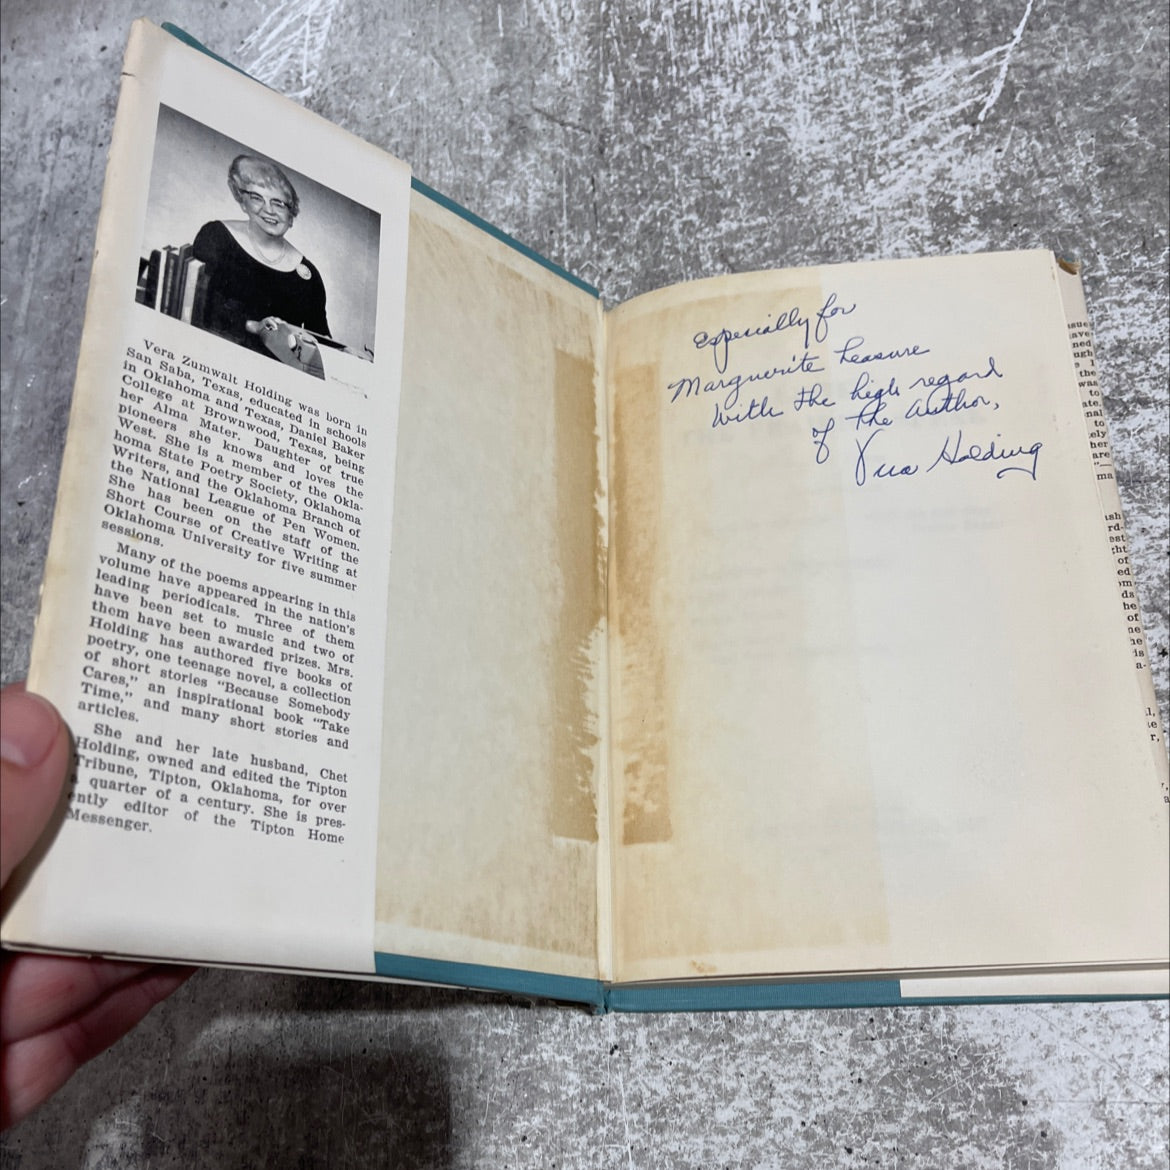 Vera Zumwalt Holding was born in
San Saba, Texas, educated in schools
in Oklahoma and Texas, Daniel Baker
College at Brownwood, Texas, being
her Alma Mater. Daughter of true
pioneers she knows and loves the
West. She is a member of the Okla-
homa State Poetry Society, Oklahoma
Writers, and the Oklahoma Branch of
the National League of Pen Women.
She has been on the staff of the
Short Course of Creative Writing at
Oklahoma University for five summer
sessions.
Many of the poems appearing in this
volume have appeared in the nation's
leading periodicals. Three of them
have been set to music and two of
them have been awarded prizes. Mrs.
Holding has authored five books of
poetry, one teenage novel, a collection
of short stories "Because Somebody
Cares," an inspirational book "Take
Time," and many short stories and
articles.
She and her late husband, Chet
Holding, owned and edited the Tipton
Tribune, Tipton, Oklahoma, for over
a quarter of a century. She is pres-
ently editor of the Tipton Home
Messenger.
Especially for
Marguerite Leasure
With the high regard
of the author,
Vera Holding